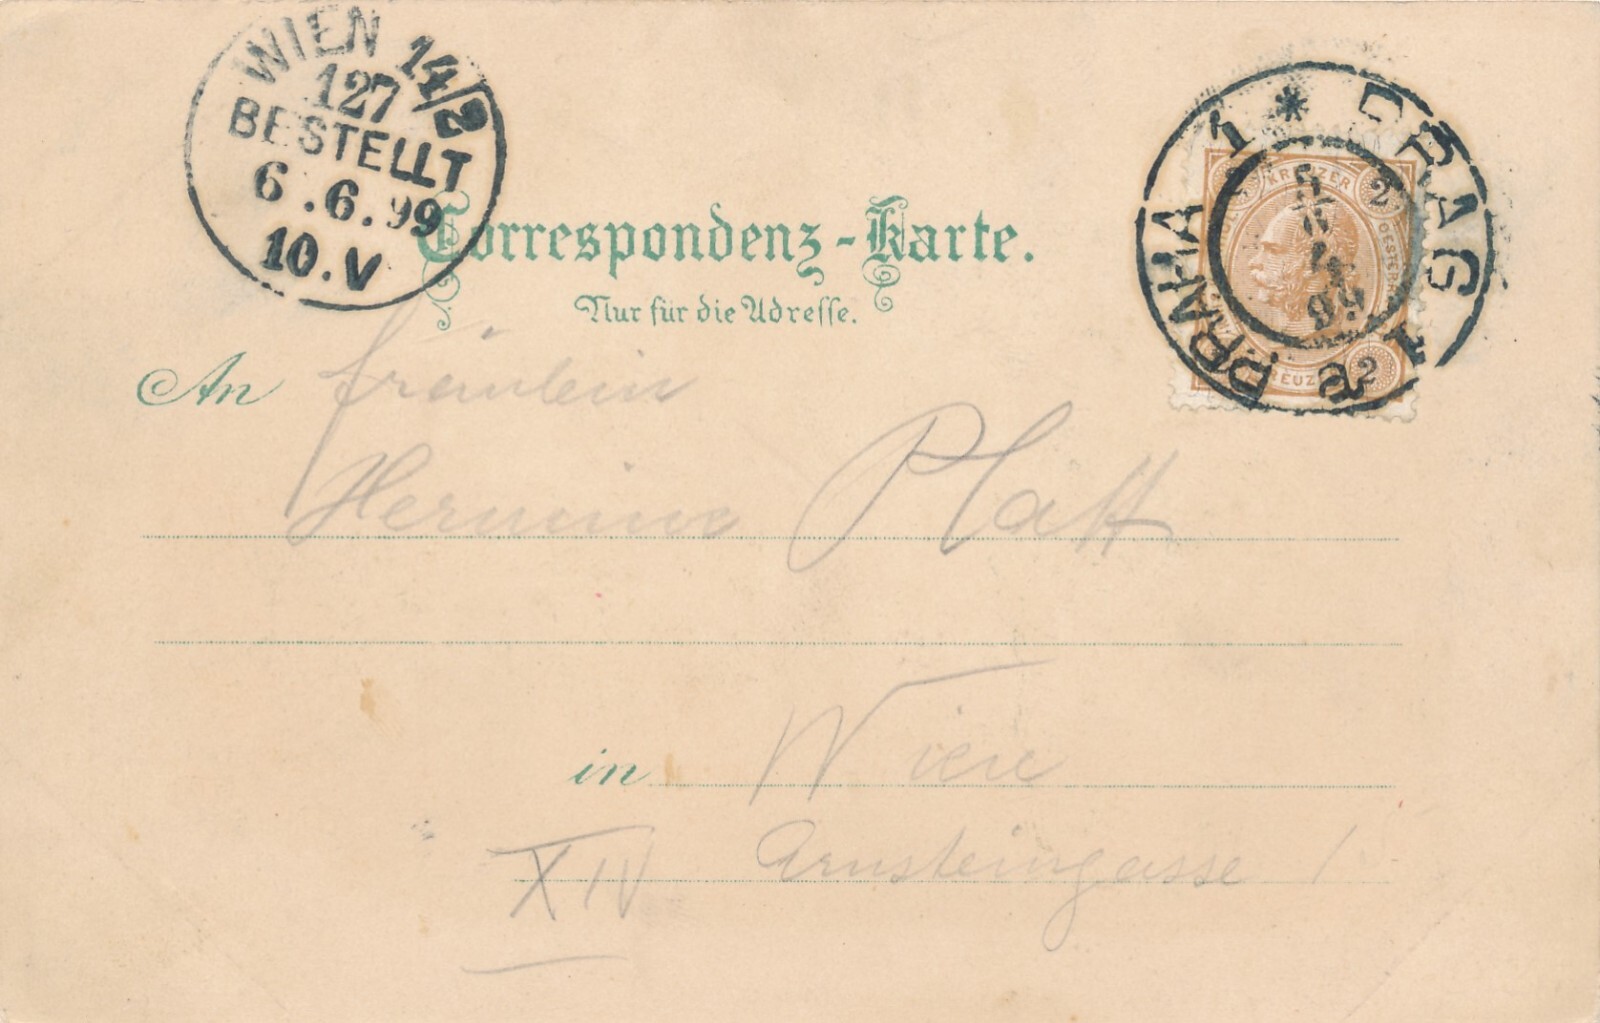 WIEN 14/2
127
BESTELLT
6.6.99
10.V
PRAG 1 * PRAHA 1
99
KREUZER
2
2
KREUZER
Correspondenz-Karte.
Nur für die Adresse.
An Fräulein
Hermine Platt
in Wien
XIV Arnsteingasse 1